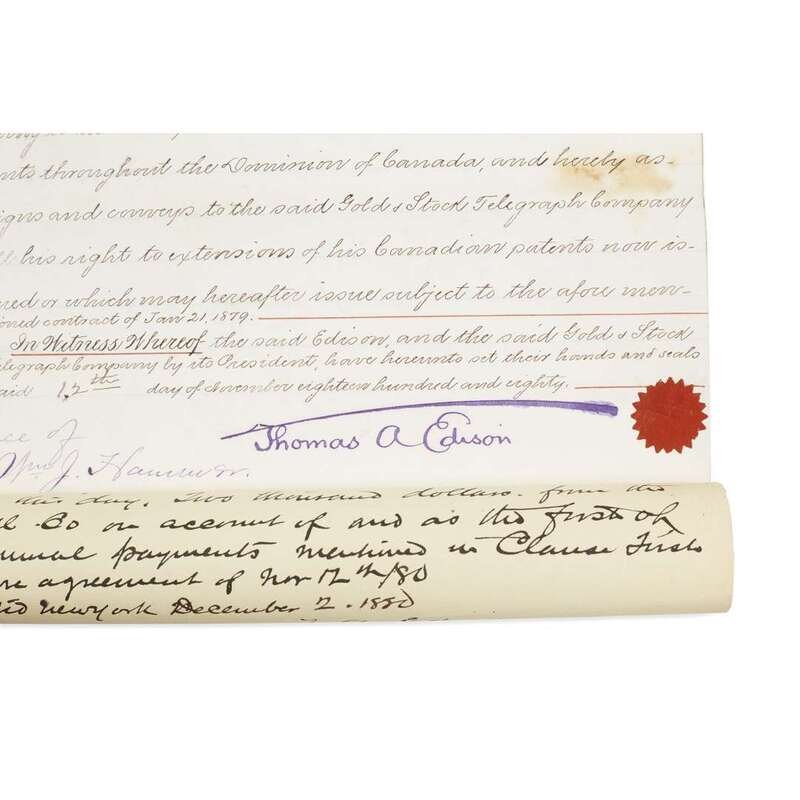 nts throughout the Dominion of Canada, and hereby as-
igns and conveys to the said Gold & Stock Telegraph Company
his right to extensions of his Canadian patents now is-
ued or which may hereafter issue subject to the afore men-
oned contract of Jan 21, 1879.
In Witness Whereof the said Edison, and the said Gold & Stock
elegraph Company by its President, have hereunto set their hands and seals
aid 12th day of November eighteen hundred and eighty.
ce of
Thomas A Edison
Wm J.
this day, Two thousand dollars from the
Co on account of and as the first of
nnual payments mentioned in Clause First
agreement of Nov 12th/80
New York December 2. 1880